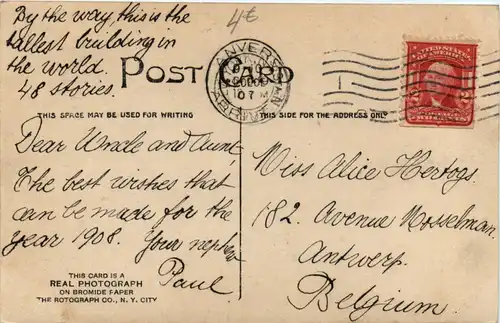 By the way, this is the
tallest building in
the world.
48 stories.
4€
POST CARD
ANVERS
07
UNITED STATES
OF AMERICA
THIS SPACE MAY BE USED FOR WRITING
THIS SIDE FOR THE ADDRESS ONLY
Dear Uncle and Aunt,
The best wishes that
can be made for the
year 1908. Your nephew
Paul
THIS CARD IS A
REAL PHOTOGRAPH
ON BROMIDE PAPER
THE ROTOGRAPH CO., N. Y. CITY
Miss Alice Hertogs.
182. Avenue Mosselman.
Antwerp.
Belgium.